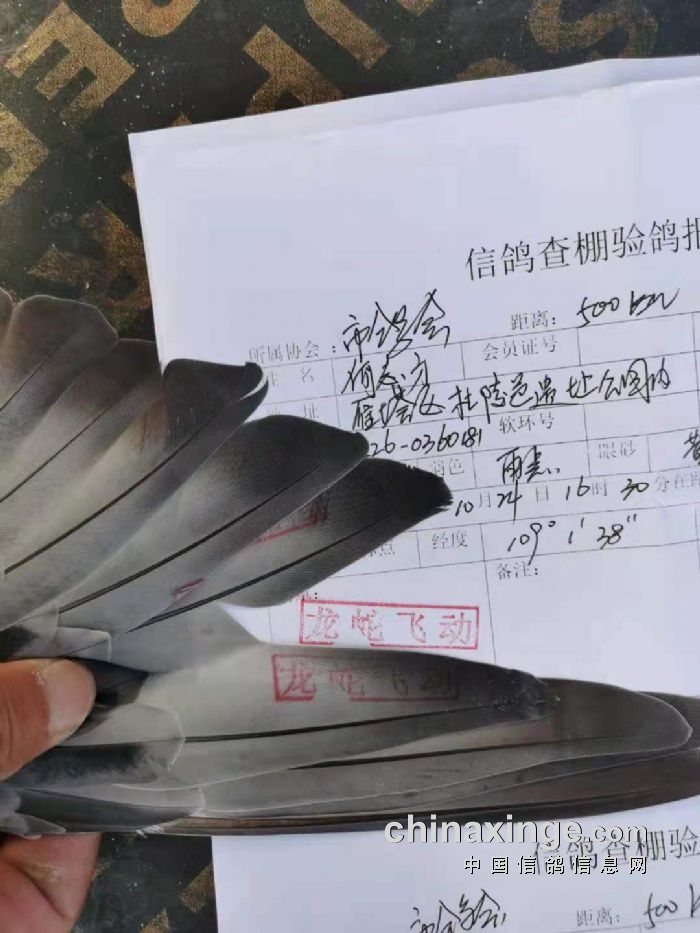 信鸽查棚验鸽报
所属协会： 距离： 500 km
名 会员证号
址 雁塔区杜陵邑遗址公园内
26-036081 软环号
羽色 雨点 眼砂 黄
10月24日16时30分在
点 经度 109° 1′ 38″
备注：
龙蛇飞动
龙蛇飞动
chinaxinge.com
中国信鸽信息网
信鸽查棚验
距离： 500